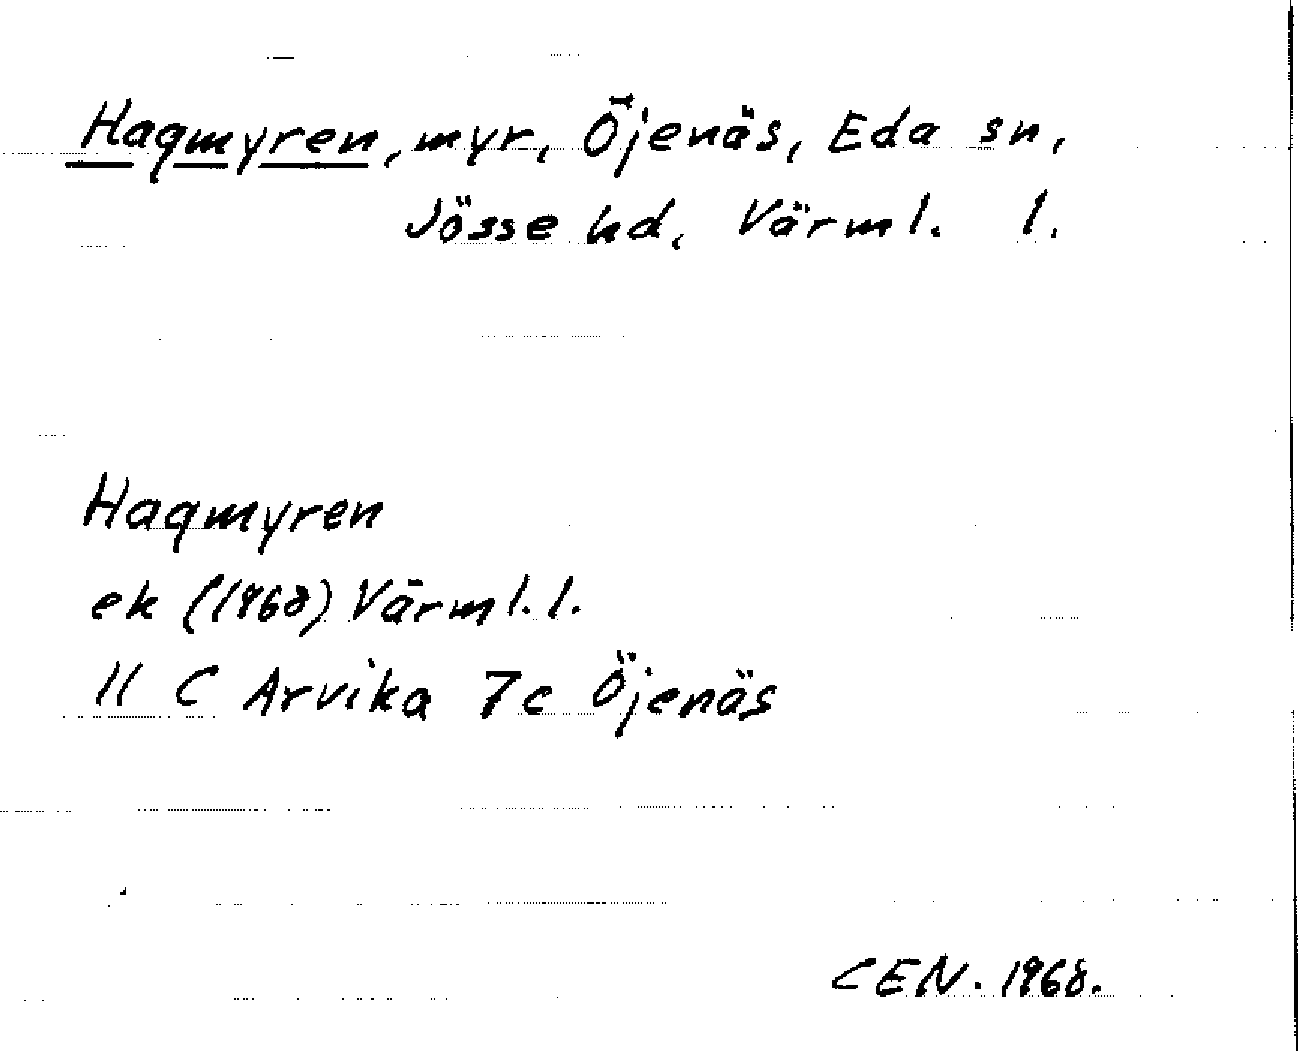 Hagmyren, myr, Öjenäs, Eda sn,
Jösse hd, Värml. l.
Hagmyren
ek (1968) Värml. l.
11 C Arvika 7c Öjenäs
CEN. 1968.